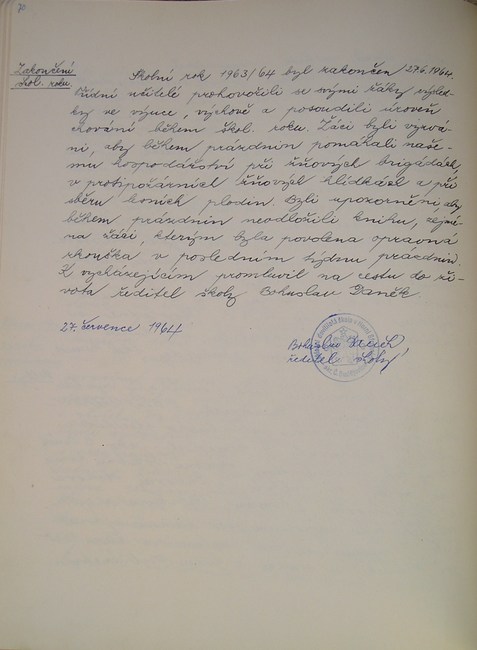 70
Zakončení
škol. roku
Školní rok 1963/64 byl zakončen 27.6.1964.
Třídní učitelé pohovořili se svými žáky výsled-
ky ve výuce, výchově a posoudili úroveň
chování během škol. roku. Žáci byli vyzvá-
ni, aby během prázdnin pomáhali naše-
mu hospodářství při žňových brigádách,
v protipožárních žňových hlídkách a při
sběru lesních plodin. Byli upozorněni, aby
během prázdnin neodložili knihu, zejmé-
na žáci, kterým byla povolena opravná
zkouška v posledním týdnu prázdnin.
K vycházejícím promluvil na cestu do ži-
vota ředitel školy Bohuslav Daněk.
27. července 1964
Bohuslav Daněk
ředitel školy